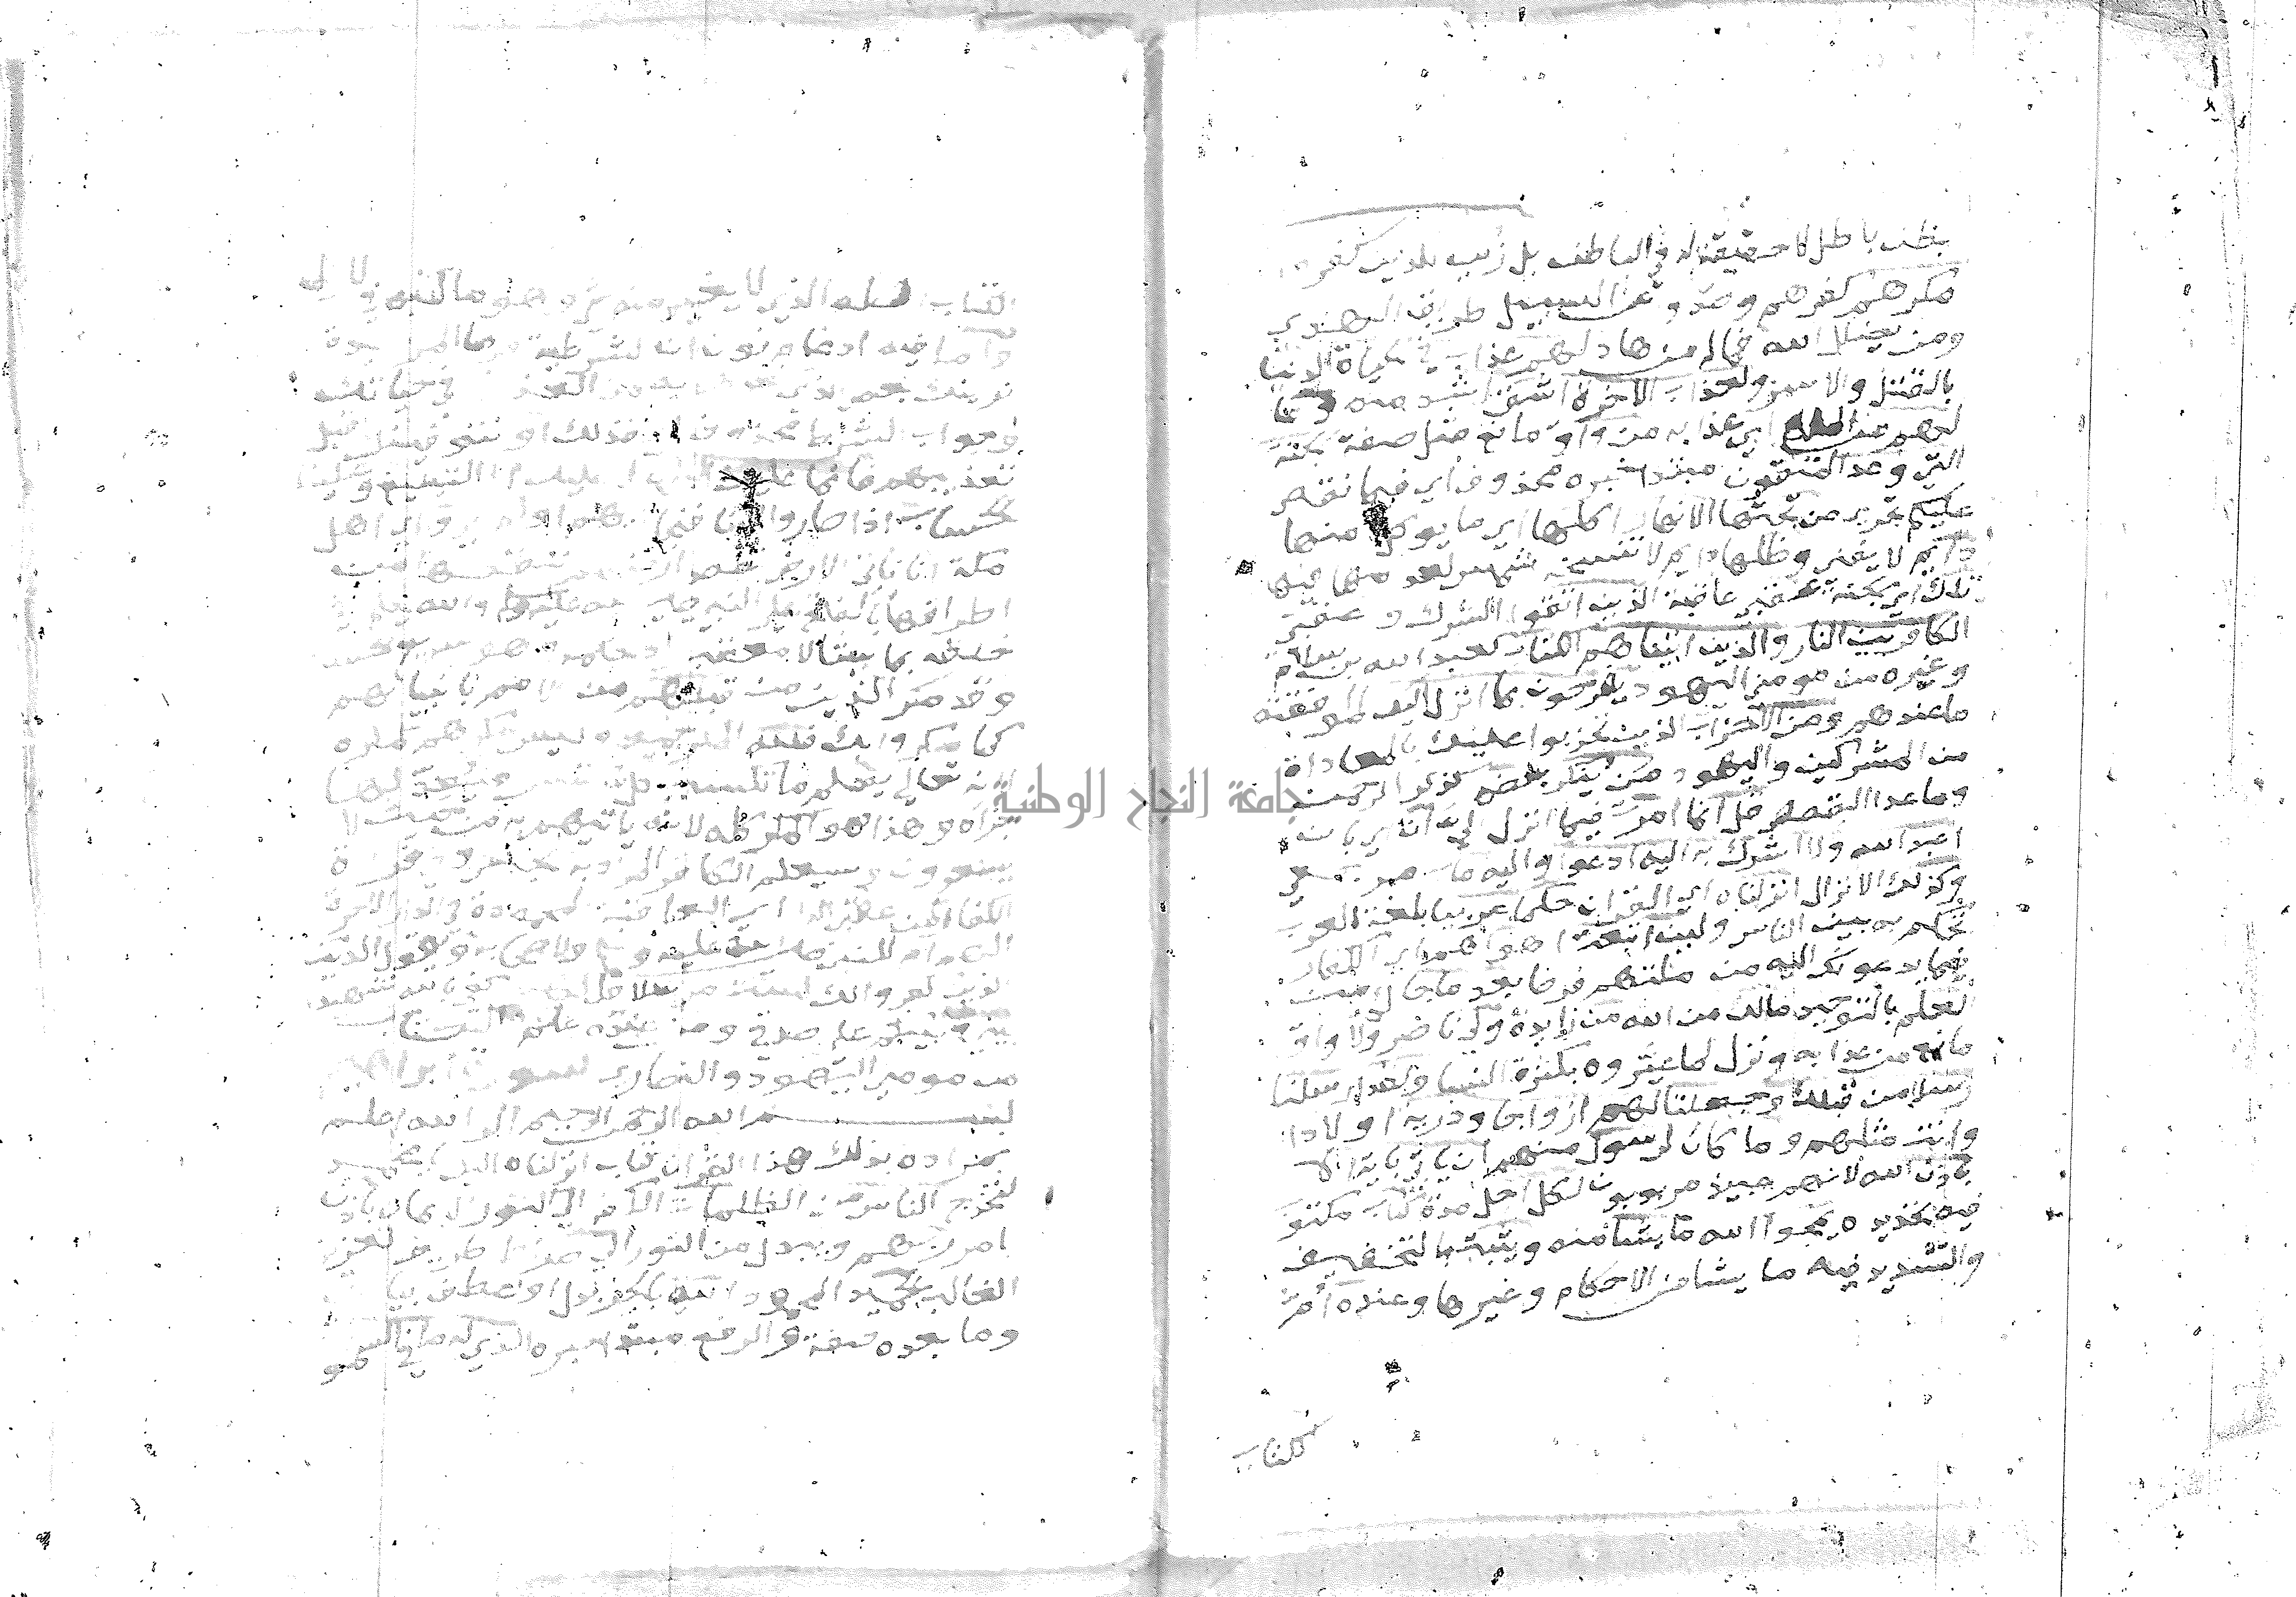 بظن باطل لا حقيقة له في الباطن بل زين للذين كفروا
مكرهم كفرهم وصدوا عن السبيل طريق الهدى
ومن يضلل الله فما له من هاد لهم عذاب في الحياة الدنيا
بالقتل والاسر ولعذاب الاخرة اشق اشد منه وما
لهم من الله اي عذابه من واق مانع مثل صفة الجنة
التي وعد المتقون مبتدا خبره محذوف اي فيما نقص
عليكم تجري من تحتها الانهار اكلها اي ما يوكل منها
دايم لا يفنى وظلها دايم لا تنسخه شمس لعدمها فيها
تلك اي الجنة عقبى عاقبة الذين اتقوا الشرك وعقبى
الكافرين النار والذين اتيناهم الكتاب كعبد الله بن سلام
وغيره من مومني اليهود يفرحون بما انزل اليك لموافقته
ما عندهم ومن الاحزاب الذين تحزبوا عليك بالمعاداة
من المشركين واليهود من ينكر بعضه كذكر الرحمن
وما عدا القصص قل انما امرت فيما انزل الي ان اي بان
اعبد الله ولا اشرك به اليه ادعوا واليه ماب مرجعي
وكذلك الانزال انزلناه اي القران حكما عربيا بلغة العرب
تحكم به بين الناس ولين اتبعت اهواهم اي الكفار
فيما يدعونك اليه من ملتهم فرضا بعد ما جاك من
العلم بالتوحيد مالك من الله من زايدة ولي ناصر ولا واق
مانع من عذابه ونزل لما عيروه بكثرة النسا ولقد ارسلنا
رسلا من قبلك وجعلنا لهم ازواجا وذرية اولادا
وانت مثلهم وما كان لرسول منهم ان ياتي باية الا
باذن الله لانهم عبيد مربوبون لكل اجل مدة كتاب مكتوب
فيه تحديده يمحوا الله ما يشا منه ويثبت بالتخفيف
والتشديد فيه ما يشا من الاحكام وغيرها وعنده ام
الكتاب
الكتاب اصله الذي لا يتغير منه شي وهو ما كتبه في
واما فيه ادغام نون ان الشرطية في ما
نرينك بعض الذي من العذاب في حياتك
وجواب الشرط محذوف اي فذلك او نتوفينك قبل
تعذيبهم فانما عليك البلاغ التبليغ وعلينا
الحساب اذا صاروا الينا فنجازيهم اولم يروا اي اهل
مكة انا ناتي الارض نقصد ننقصها من
اطرافها بالفتح على النبي صلى الله عليه وسلم والله يحكم في
خلقه بما يشا لا معقب
وقد مكر الذين من قبلهم من الامم بانبيايهم
كما مكروا بك فلله المكر جميعا وليس مكرهم كمكره
لانه تعالى يعلم ما تكسب كل نفس فيعد لها
جزاه وهذا هو المكر كله لانه ياتيهم به من حيث لا
يشعرون وسيعلم الكافر المراد به الجنس وفي قراة
الكفار لمن عقبى الدار اي العاقبة المحمودة في الدار الاخرة
الهم ام للنبي صلى الله عليه وسلم واصحابه ويقول الذين
كفروا لك لست مرسلا قل لهم كفى بالله شهيدا
بيني وبينكم على صدقي ومن عنده علم الكتاب
من مومني اليهود والنصارى سورة ابراهيم
بسم الله الرحمن الرحيم الر الله اعلم
بمراده بذلك هذا القران كتاب انزلناه اليك
لتخرج الناس من الظلمات الكفر الى النور الايمان باذن
امر ربهم ويبدل من النور الى صراط طريق العزيز
الغالب الحميد المحمود الله بالجر بدل او عطف بيان
وما بعده صفة والرفع مبتدا خبره الذي له ما في السمو
جامعة النجاح الوطنية